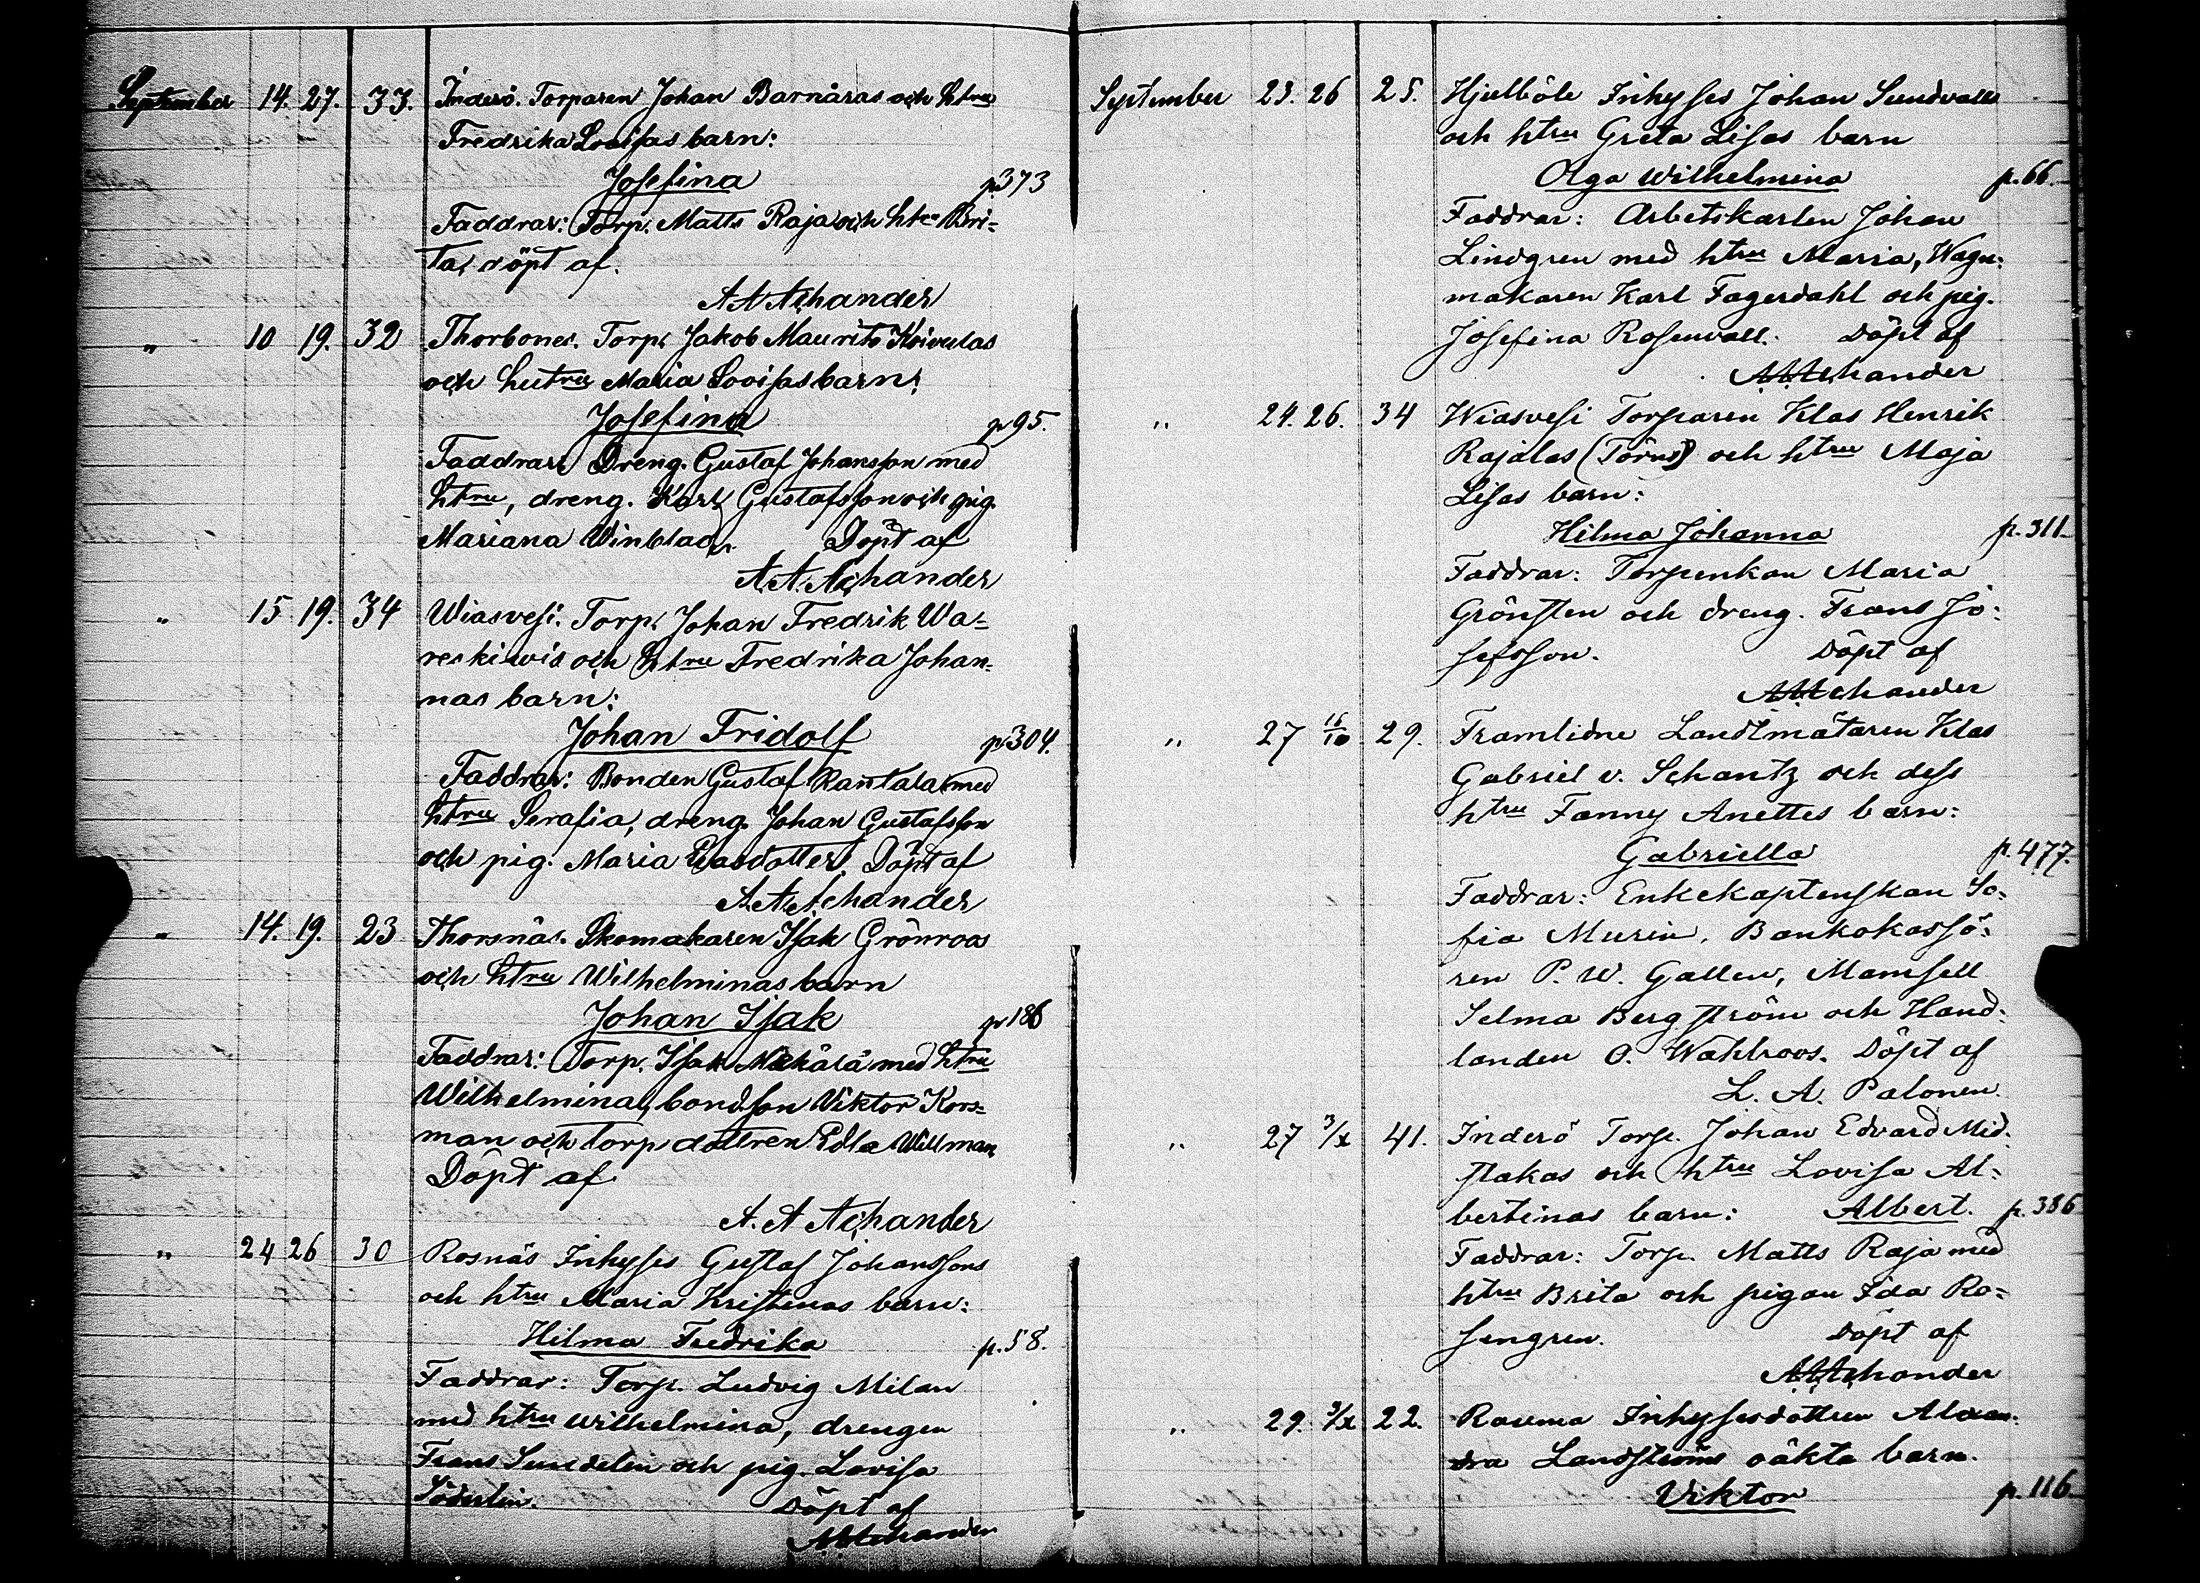 September 14. 27. 33. Inderö. Torparen Johan Barnåras och htru
Fredrika Lovisas barn:
Josefina p 373
Faddrar: Torp. Matts Raja och htru Bri-
ta, döpt af.
A A Achander
" 10 19. 32 Thorbones. Torp. Jakob Maurits Koivulas
och hustru Maria Lovisas barn:
Josefina p 95.
Faddrar: Dreng. Gustaf Johansson med
htru, dreng. Karl Gustafsson och pig.
Mariana Winblad. Döpt af
A. A. Achander
" 15 19. 34 Wiasvesi. Torp. Johan Fredrik Wa-
reskivis och htru Fredrika Johan-
nas barn:
Johan Fridolf p 304.
Faddrar: Bonden Gustaf Rantala med
htru Serafia, dreng. Johan Gustafsson
och pig. Maria Döpt af
A. A. Achander
" 14. 19. 23 Thorsnäs. Skomakaren Isak Grönroos
och htru Wilhelminas barn
Johan Isak p 186
Faddrar: Torp. Isak med htru
Wilhelmina, bondson Viktor Kors-
man och torp dottren Edla Willman
Döpt af
A. A Achander
" 24 26 30 Rosnäs Inhyses Gustaf Johanssons
och htru Maria Kristinas barn:
Hilma Fredrika p. 58.
Faddrar: Torp. Ludvig Milan
med htru Wilhelmina, drengen
Frans Sundelin och pig. Lovisa
Söderlin. Döpt af
AAAchander
September 23. 26 25. Hjulböle Inhyses Johan Sundvalls
och htru Greta Lisas barn
Olga Wilhelmina p. 66.
Faddrar: Arbetskarlen Johan
Lindgren med htru Maria, Wagn-
makaren Karl Fagerdahl och pig.
Josefina Rosenvall. Döpt af
AAAchander
" 24. 26. 34 Wiasvesi Torparen Klas Henrik
Rajalas (Törne) och htru Maja
Lisas barn:
Hilma Johanna p. 311.
Faddrar: Torpenkan Maria
Grönsten och dreng. Frans Jo-
sefsson. Döpt af
AAAchander
" 27 16/10 29. Framlidne Landtmätaren Klas
Gabriel v. Schantz och dess
htru Fanny Anettes barn:
Gabriella p. 477.
Faddrar: Enkekaptenskan So-
fia Murin, Bankokassö-
ren P. W. Gallen, Mamsell
Selma Bergström och Hand-
landen O. Wahlroos. Döpt af
L. A. Palonen.
" 27 3/X 41. Inderö Torp. Johan Edvard Mid-
stakas och htru Lovisa Al-
bertinas barn: Albert. p. 386
Faddrar: Torp. Matts Raja med
htru Brita och pigan Ida Ro-
sengren. Döpt af
AAAchander
" 29. 3/X 22. Rauma Inhysesdottren Alexan-
dra Landströms oäkta barn.
Viktor p. 116